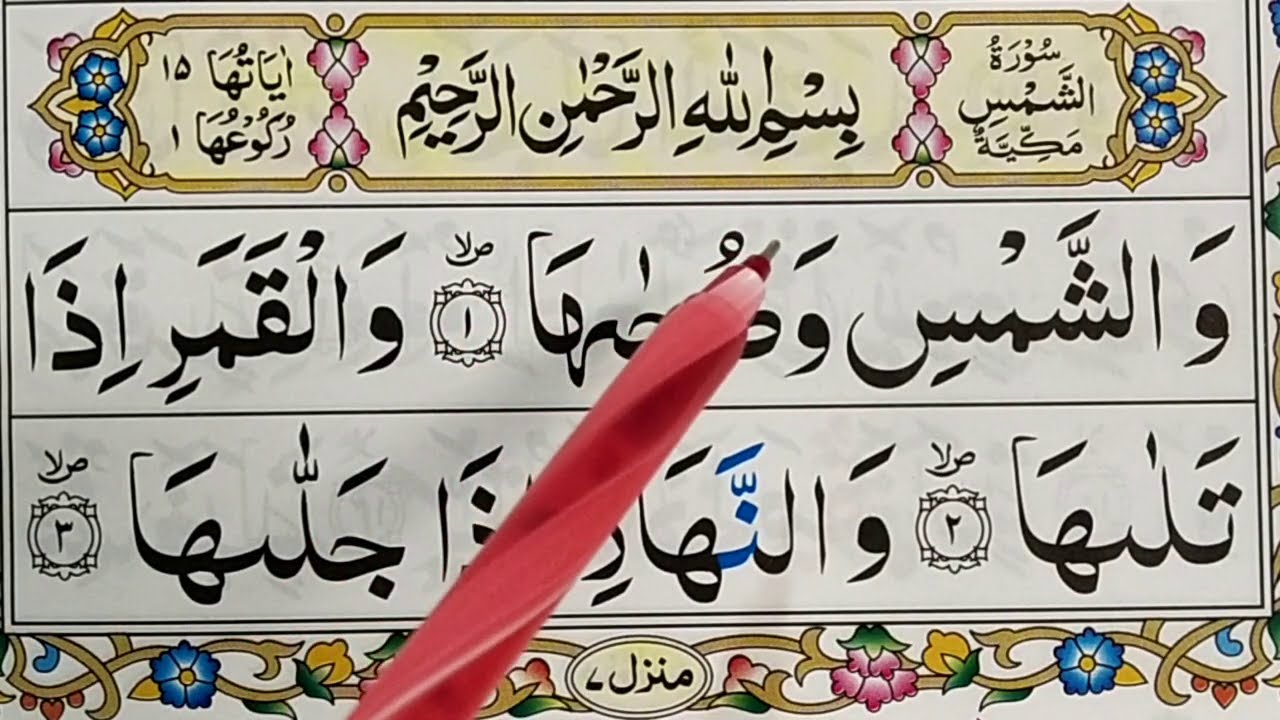 سُوْرَةُ
الشَّمْسِ
مَكِّيَّةٌ
بِسْمِ اللّٰهِ الرَّحْمٰنِ الرَّحِيْمِ
اٰيَاتُهَا ١٥
رُكُوْعُهَا ١
وَالشَّمْسِ وَضُحٰىهَا ۙ١ وَالْقَمَرِ اِذَا
تَلٰىهَا ۙ٢ وَالنَّهَارِ اِذَا جَلّٰىهَا ۙ٣
منزل ٧